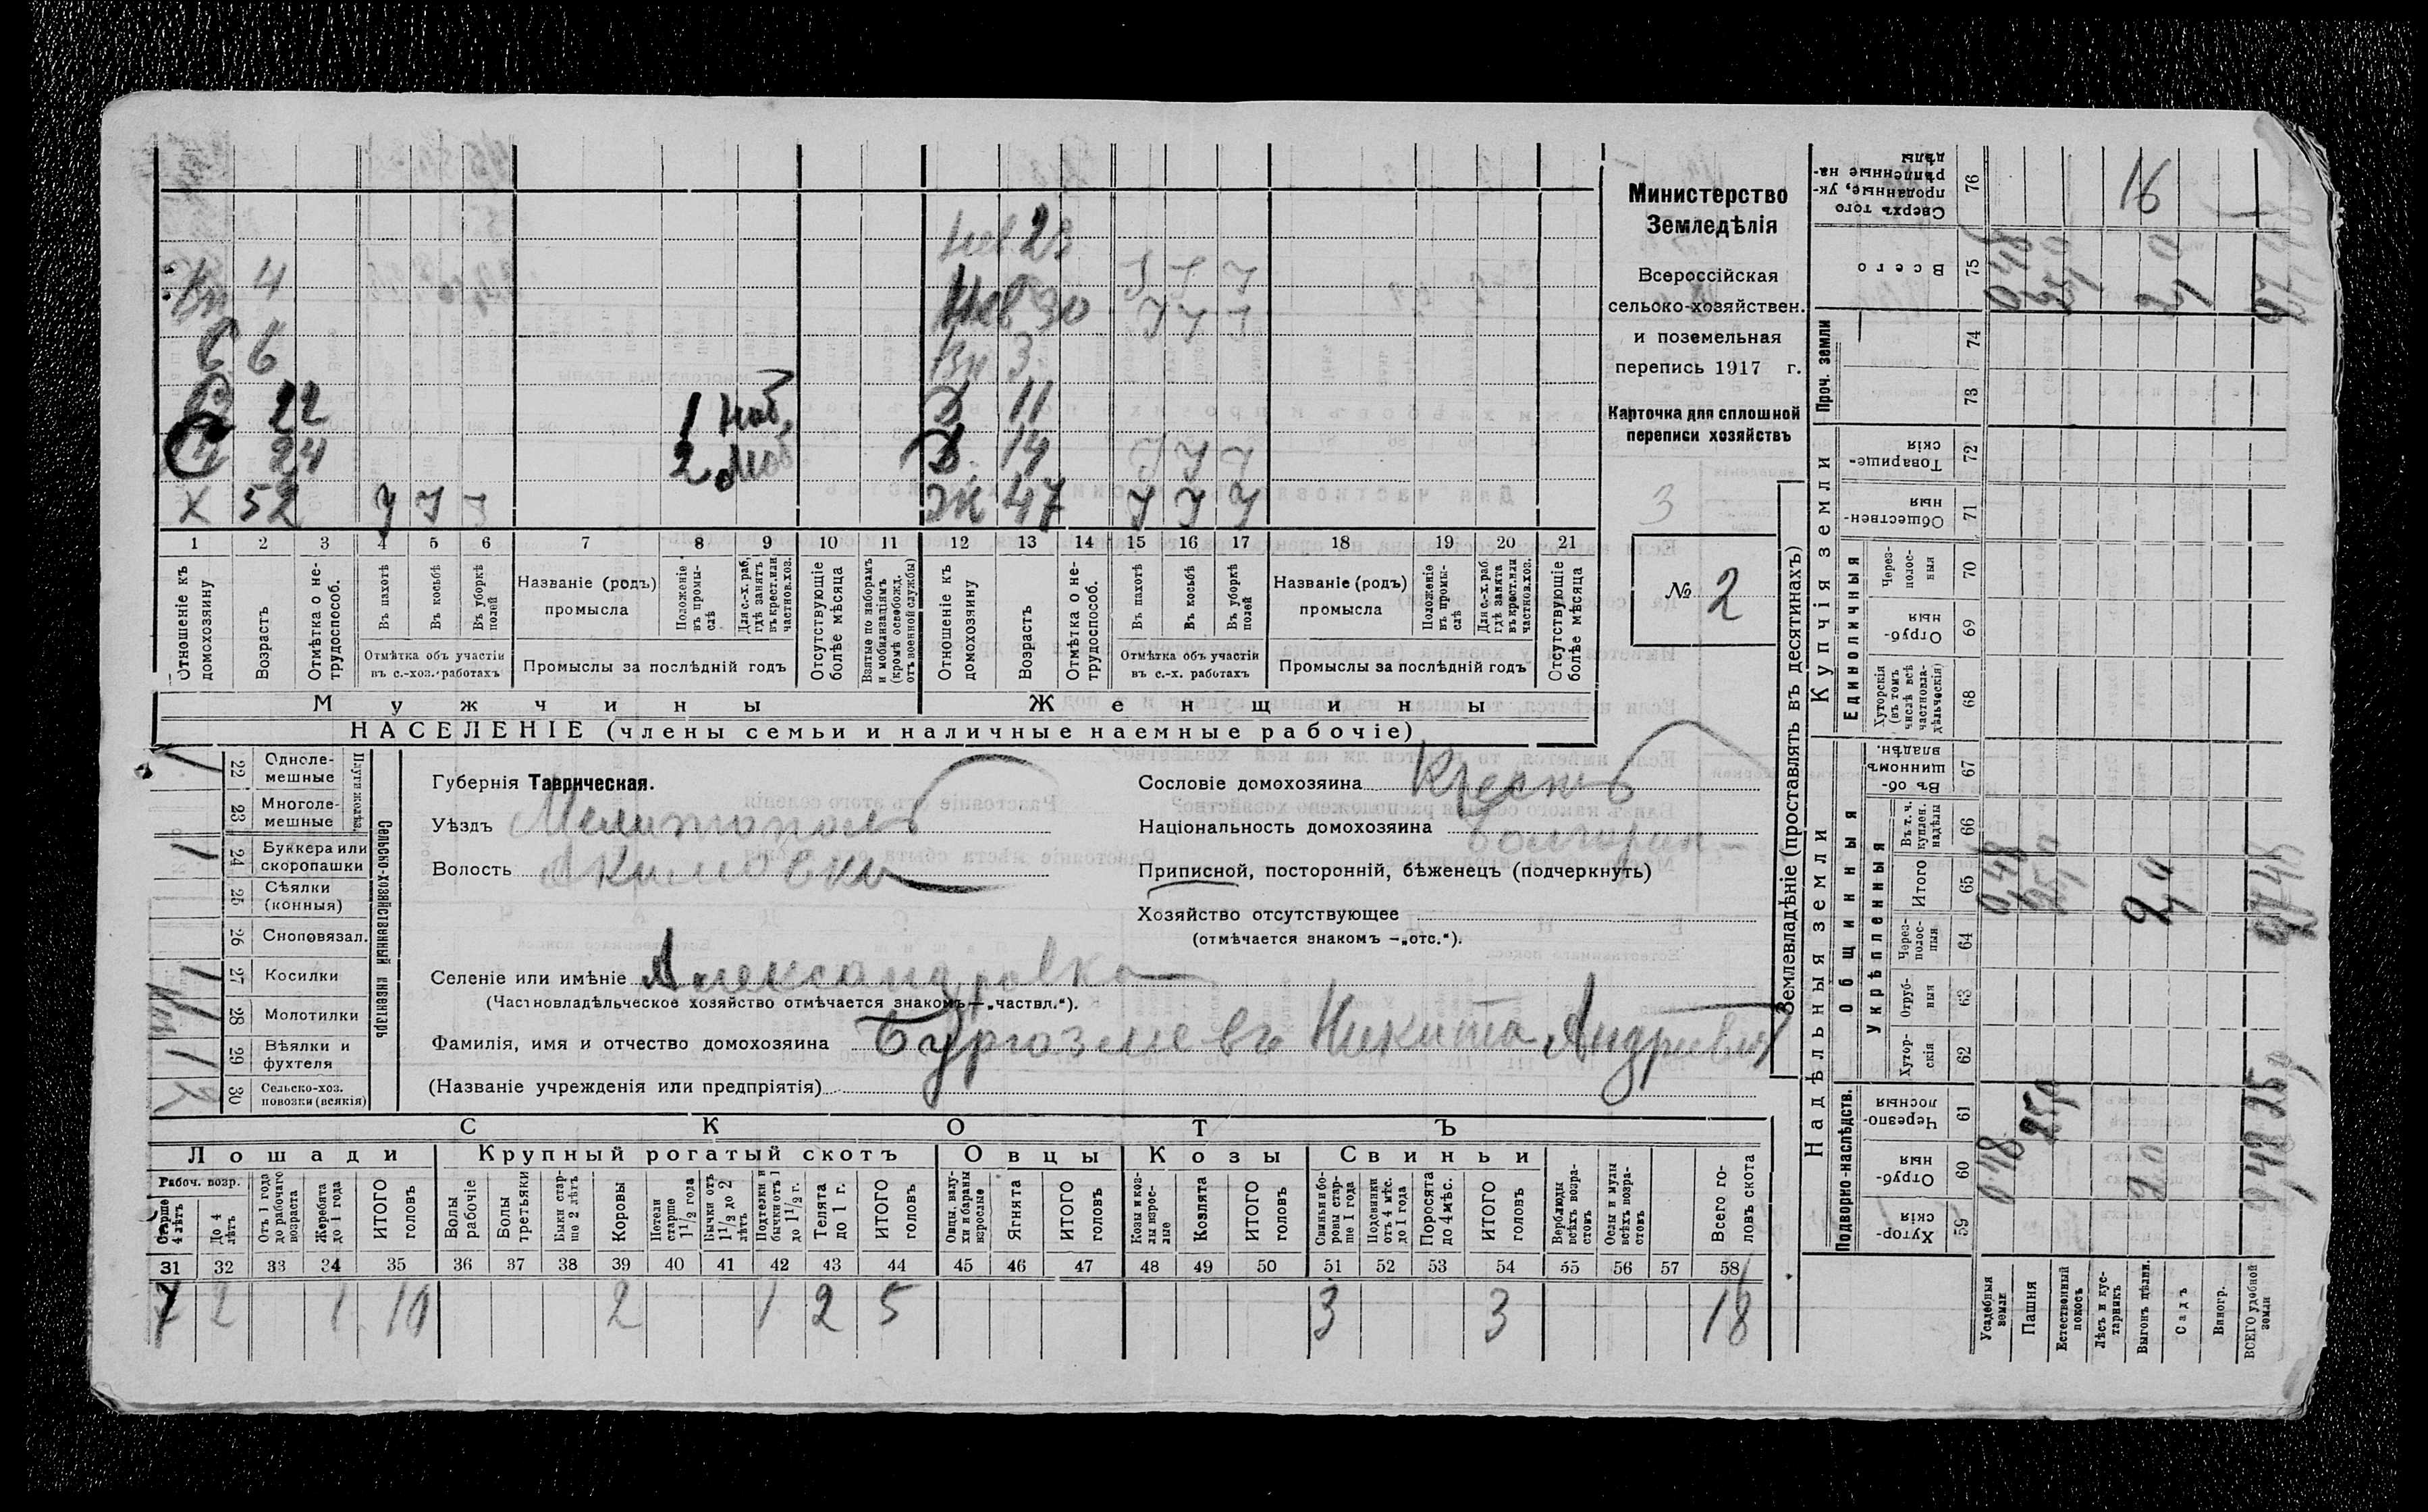 23
Вн 4
Нев 30 У У У
С 6
Вн 3
С 22 1 Моб.
Д 11
С 24 2 Моб
Д. 14 У У У
Х 52 У У У
Ж 47 У У У
1 2 3 4 5 6 7 8 9 10 11 12 13 14 15 16 17 18 19 20 21
Отношеніе къ домохозяину
Возрастъ
Отмѣтка о не-трудоспособ.
Въ пахотѣ
Въ косьбѣ
Въ уборкѣ полей
Отмѣтка объ участіи въ с.-хоз. работахъ
Названіе (родъ) промысла
Положеніе въ промы-слѣ
Для с.-х. раб. гдѣ занятъ въ крест. или частновл. хоз.
Промыслы за послѣдній годъ
Отсутствующіе болѣе мѣсяца
Взятые по наборамъ и мобилизаціямъ (кромѣ освобожд. отъ военной службы)
Отношеніе къ домохозяину
Возрастъ
Отмѣтка о не-трудоспособ.
Въ пахотѣ
Въ косьбѣ
Въ уборкѣ полей
Отмѣтка объ участіи въ с.-х. работахъ
Названіе (родъ) промысла
Положеніе въ промы-слѣ
Для с.-х. раб. гдѣ занята въ крест. или частновл. хоз.
Промыслы за послѣдній годъ
Отсутствующіе болѣе мѣсяца
Мужчины
Женщины
НАСЕЛЕНІЕ (члены семьи и наличные наемные рабочіе)
Министерство
Земледѣлія
Всероссійская
сельско-хозяйствен.
и поземельная
перепись 1917 г.
Карточка для сплошной
переписи хозяйствъ
3
№ 2
1 22 Одноле-мешные
23 Многоле-мешные
Плуги желѣз.
1 24 Буккера или скоропашки
25 Сѣялки (конныя)
26 Сноповязал.
1 27 Косилки
28 Молотилки
1 29 Вѣялки и фухтеля
2 30 Сельско-хоз. повозки (всякія)
Сельско-хозяйственный инвентарь
Губернія Таврическая.
Уѣздъ Мелитополь
Волость Акимовка
Селеніе или имѣніе Александровка
(Частновладѣльческое хозяйство отмѣчается знакомъ—„частвл.“).
Фамилія, имя и отчество домохозяина Бургазлиевъ Никита Андриевич
(Названіе учрежденія или предпріятія)
Сословіе домохозяина Крестьян
Національность домохозяина Болгарин
Приписной, посторонній, бѣженецъ (подчеркнуть)
Хозяйство отсутствующее
(отмѣчается знакомъ —„отс.“).
СКОТЪ
Лошади
Крупный рогатый скотъ
Овцы
Козы
Свиньи
Рабоч. возр.
Старше 4 лѣтъ
До 4 лѣтъ
Отъ 1 года до рабочаго возраста
Жеребята до 1 года
ИТОГО головъ
Волы рабочіе
Волы третьяки
Быки стар-ше 2 лѣтъ
Коровы
Нетели старше 1 1/2 года
Бычки отъ 1 1/2 до 2 лѣтъ
Подтелки и бычки отъ 1 до 1 1/2 г.
Телята до 1 г.
ИТОГО головъ
Овцы, валу-хи и бараны взрослые
Ягнята
ИТОГО головъ
Козы и коз-лы взрос-лые
Козлята
ИТОГО головъ
Свиньи и бо-ровы стар-ше 1 года
Подсвинки отъ 4 мѣс. до 1 года
Поросята до 4 мѣс.
ИТОГО головъ
Верблюды всѣхъ возра-стовъ
Ослы и мулы всѣхъ возра-стовъ
Всего го-ловъ скота
31 32 33 34 35 36 37 38 39 40 41 42 43 44 45 46 47 48 49 50 51 52 53 54 55 56 57 58
7 2 1 10 2 1 2 5 3 3 18
Землевладѣніе (проставлять въ десятинахъ)
Надѣльныя земли
Купчія земли
Проч. земли
Подворно-наслѣдств.
Общинныя
Укрѣпленныя
Единоличныя
Хутор-скія 59
Отруб-ныя 60
Черезпо-лосныя 61
Хутор-скія 62
Отруб-ныя 63
Через-полос-ныя 64
Итого 65
Въ т. ч. куплен. надѣлы 66
Въ об-щинномъ владѣн. 67
Хуторскія (въ томъ числѣ всѣ частновла-дѣльческія) 68
Отруб-ныя 69
Через-полос-ныя 70
Обществен-ныя 71
Товарище-скія 72
73
74
Всего 75
Сверхъ того проданные, ук-рѣпленные на-дѣлы 76
Усадебныя земли 0,48 0,48
Пашня
Естественный покосъ
Лѣсъ и кус-тарникъ
Выгонъ цѣлин. 16
Садъ
Виногр.
ВСЕГО удобной земли